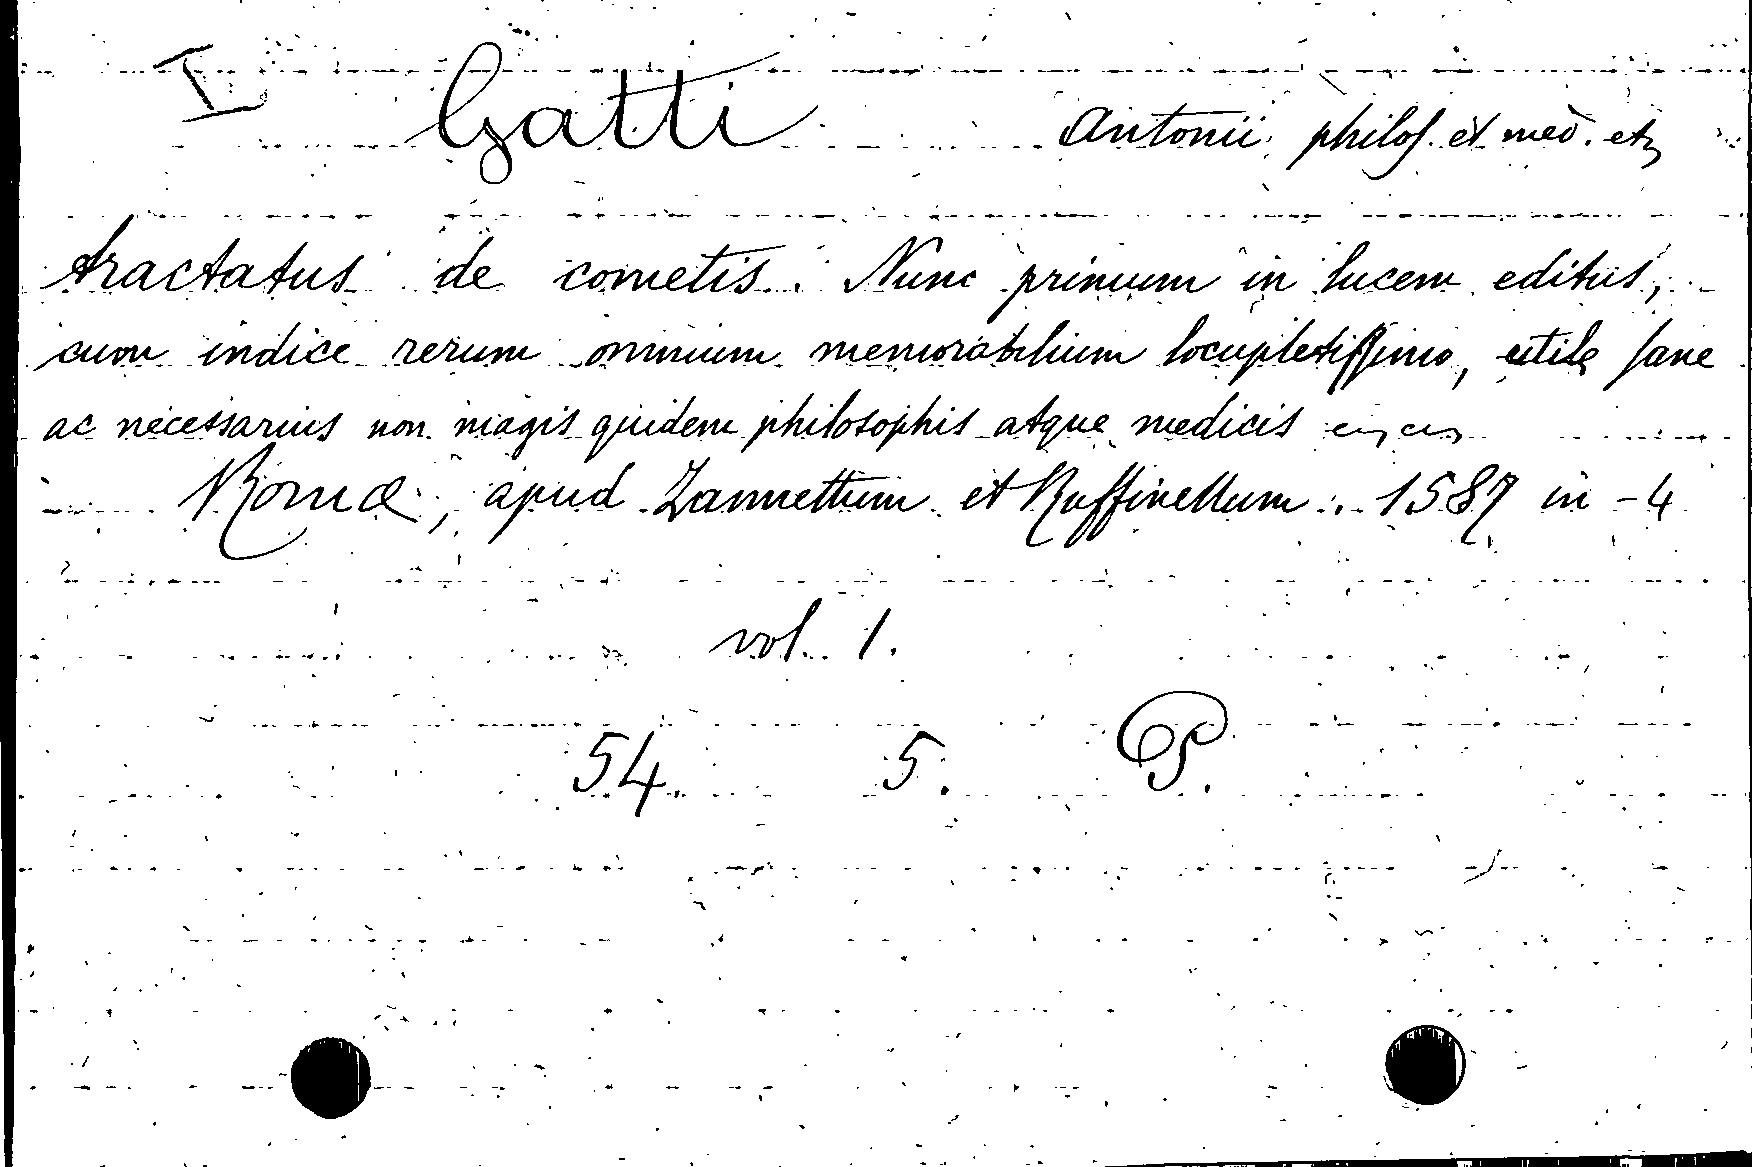 I Gatti Antonii philoſ. et med. etc
tractatus de cometis. Nunc primum in lucem editus,
cum indice rerum omnium memorabilium locupletiſſimo, utile ſane
ac necessarius non magis quidem philosophis atque medicis
Romæ, apud Zannettum et Ruffinellum. 1587 in-4
vol. 1.
54. 5. P.